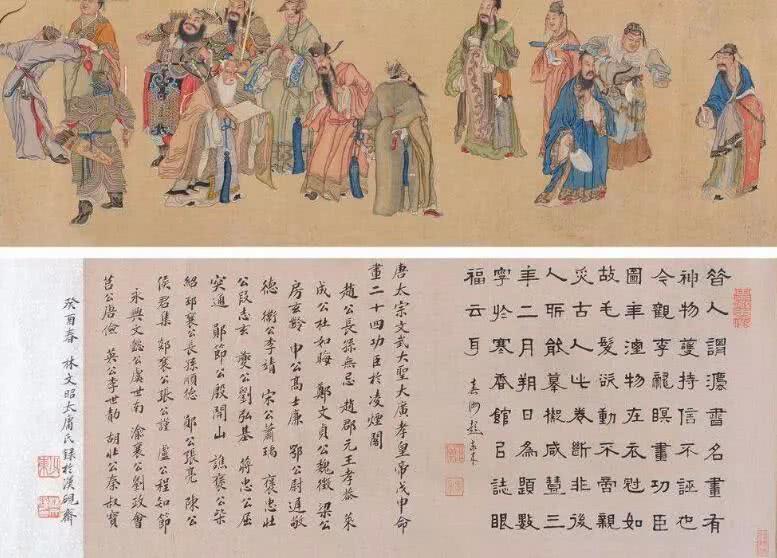 昔人謂灋書名畫有
神物護持信不誣也
今觀李龍瞑畫功臣
圖年湮物在衣冠如
故毛髮欲動不啻親
炙古人此卷斷非後
人所能摹擬咸豐三
年二月朔日為題數
字於寒香館以誌眼
福云耳 真州
唐太宗文武大聖大廣孝皇帝戊申命
畫二十四功臣於凌煙閣
趙公長孫無忌 趙郡元王孝恭 萊
成公杜如晦 鄭文貞公魏徵 梁公
房玄齡 申公高士廉 鄂公尉遲敬
德 衛公李靖 宋公蕭瑀 褒忠壯
公段志玄 夔公劉弘基 蔣忠公屈
突通 鄖節公殷開山 譙襄公柴
紹 邳襄公長孫順德 鄖公張亮 陳公
侯君集 郯襄公張公謹 盧公程知節
永興文懿公虞世南 渝襄公劉政會
莒公唐儉 英公李世勣 胡壯公秦叔寶
癸酉春 林文昭太庸氏錄於漢硯齋